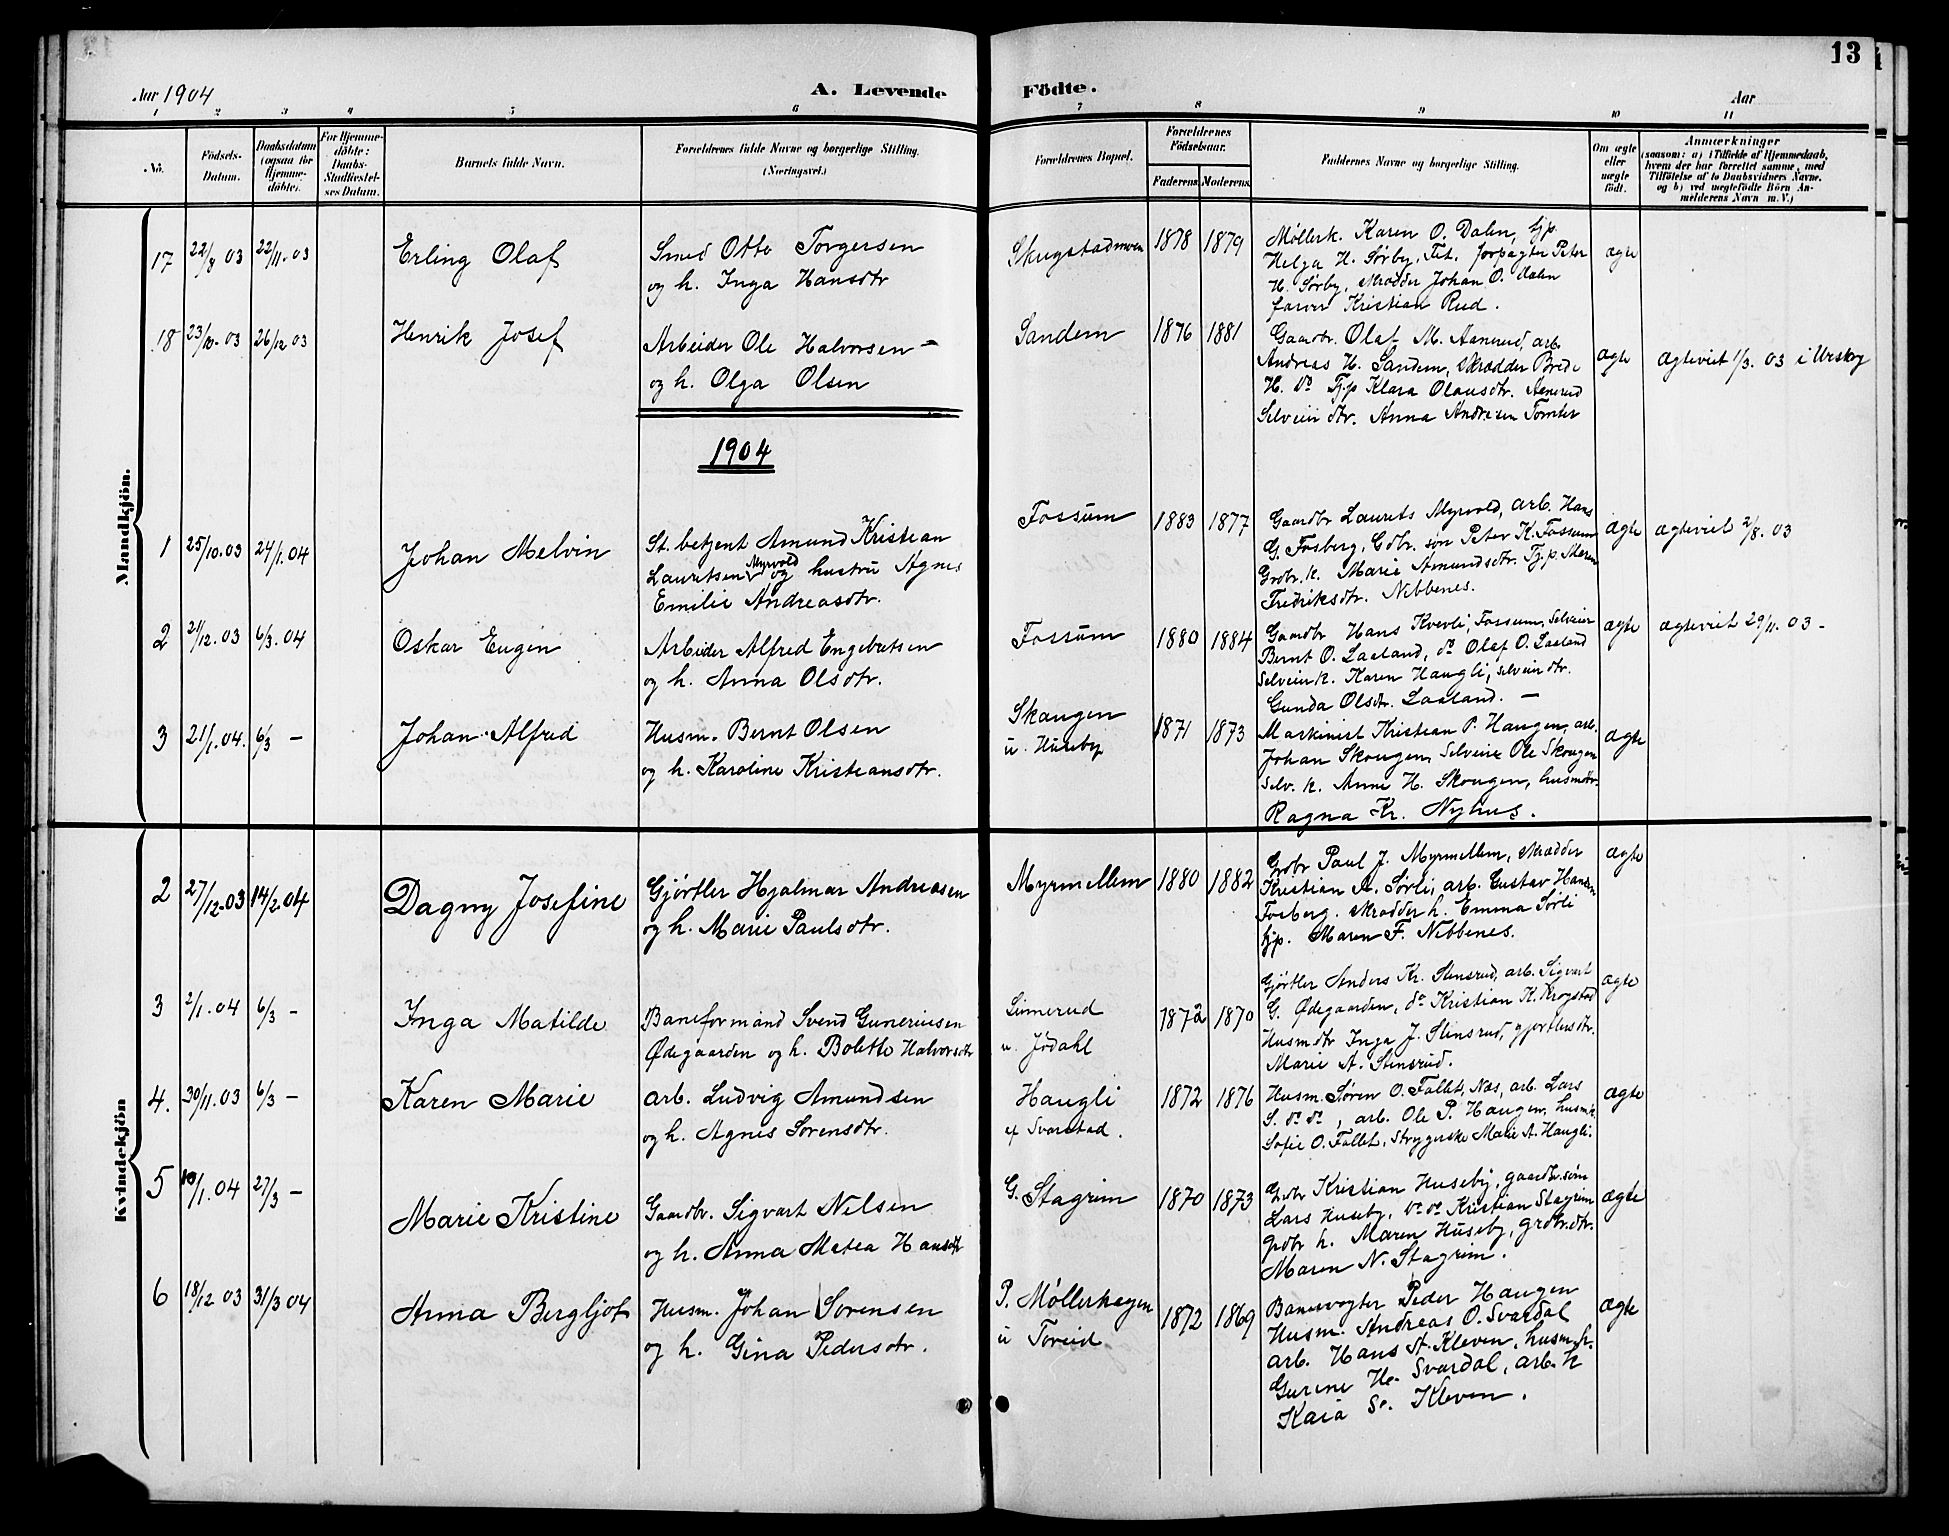 13
Aar 1904
A. Levende
Födte.
Aar
1 2 3 4 5 6 7 8 9 10 11
No.
Födsels-
Datum.
Daabsdatum
(ogsaa for
Hjemme-
döbte).
For Hjemme-
döbte:
Daabs-
Stadfæstel-
ses Datum.
Barnets fulde Navn.
Forældrenes fulde Navne og borgerlige Stilling.
(Næringsvei.)
Forældrenes Bopæl.
Forældrenes
Födselsaar.
Faderens.
Moderens.
Faddernes Navne og borgerlige Stilling.
Om ægte
eller
uægte
födt.
Anmærkninger
(saasom: a) i Tilfælde af Hjemmedaab,
hvem der har forrettet samme, med
Tilföielse af to Daabsvidners Navne,
og b) ved uægtefödte Börn An-
melderens Navn m. V.)
Mandkjön.
17 22/8 03 22/11.03 Erling Olaf
Smed Otto Torgersen
og h. Inga Hansdtr
Skugstadmoen 1878 1879
Møllerk. Karen O. Dalen, tjp.
Helga H. Sørby, Fet. forpagter Peter
H. Sørby, skrædder Johan O. Dalen
farver Kristian Rud.
ægte
18 23/10-03 26/12 03 Henrik Josef
Arbeider Ole Halvorsen -
og h. Olga Olsen
Sandem 1876 1881
Gaardbr. Olaf M. Aamrud, arb.
Andreas H. Sandem, skrædder Brede
H. do Tj.p Klara Olausdtr. Aamrud
Selveierdtr. Anna Andresen Tomter
ægte ægteviet 1/3. 03 i Urskog
1904
1 25/10.03 24/1.04 Johan Melvin
St. betjent Amund Kristian
Lauritsen Myrvold og hustru Agnes
Emilie Andreasdtr.
Fossum 1883 1877
Gaardbr Laurits Myrvold, arb. Hans
G. Fosberg, Gdbr. søn Peter K. Fossum
Grdbr. k. Marie Amundsdtr. Tj.p. Maren
Fredriksdtr. Nebbenes.
ægte ægteviet 2/8. 03
2 21/12.03 6/3.04 Oskar Eugen
Arbeider Alfred Engebretsen
og h. Anna Olsdtr.
Fossum 1880 1884
Gaardbr Hans Kverli, Fossum, Selveier
Bernt O. Laaland, do Olaf O. Laaland
Selveierk. Karen Haugli, selveierdtr.
Gunda Olsdtr. Laaland. -
ægte ægteviet 29/11. 03 -
3 21/1.04. 6/3 - Johan Alfred
Husm. Bernt Olsen
og h. Karoline Kristiansdtr.
Skaugen
u. Huseby
1871 1873
Maskinist Kristian P. Haugen, arb.
Johan Skougen, Selveier Ole Skougen
Selv. k. Anne H. Skougen, husmdtr.
Ragna Kr. Nyhus.
ægte
Kvindekjön
2 27/12-03 14/2.04 Dagny Josefine
Gjørtler Hjalmar Andreasen
og h. Marie Paulsdtr.
Myrmellem 1880 1882
Grdbr Paul J. Myrmellem, skrædder
Kristian A. Sørli, arb. Gustav Hansen
Fosberg. skrædder h. Emma Sørli
tjp. Maren F. Nebbenes.
ægte
3 2/1.04 6/3 - Inga Matilde
Baneformand Svend Guneriusen
Ødegaarden og h. Bolette Halvorsdtr
Linnerud
u. Jødahl
1872 1870
Gjørtler Anders Kr. Stensrud, arb. Sigvart
G. Ødegaarden, do Kristian K. Krogstad
Husmdtr Inga J. Stensrud, gjørtlersdtr.
Marie A. Stensrud.
ægte
4. 30/11.03 6/3 - Karen Marie
arb. Ludvig Amundsen
og h. Agnes Sørensdtr.
Haugli
af Svarstad.
1872 1876
Husm. Søren O. Fallet, Næs, arb. Lars
S. do do, arb. Ole P. Haugen, husm. k.
Sofie O. Fallet, Strygerske Marie A. Haugli.
ægte
5 10/1.04 27/3 - Marie Kristine
Gaardbr. Sigvart Nilsen
og h. Anna Matea Hansdtr
G. Stagrim 1870 1873
Grdbr Kristian Huseby, gaardbr. søn
Lars Huseby, do do Kristian Stagrim
Grdbr h. Maren Huseby, grdbr. dtr.
Maren N. Stagrim.
ægte
6 18/12 03 31/3 04 Anna Bergljot
Husm. Johan Sørensen
og h. Gina Pedersdtr.
P. Møllerhagen
u Toreid
1872 1869
Banevogter Peder Haugen
Husm. Andreas O. Svardal
arb. Hans A. Kleven, husm. k.
Gurine He. Svardal, arb. h
Kaia S. Kleven.
ægte